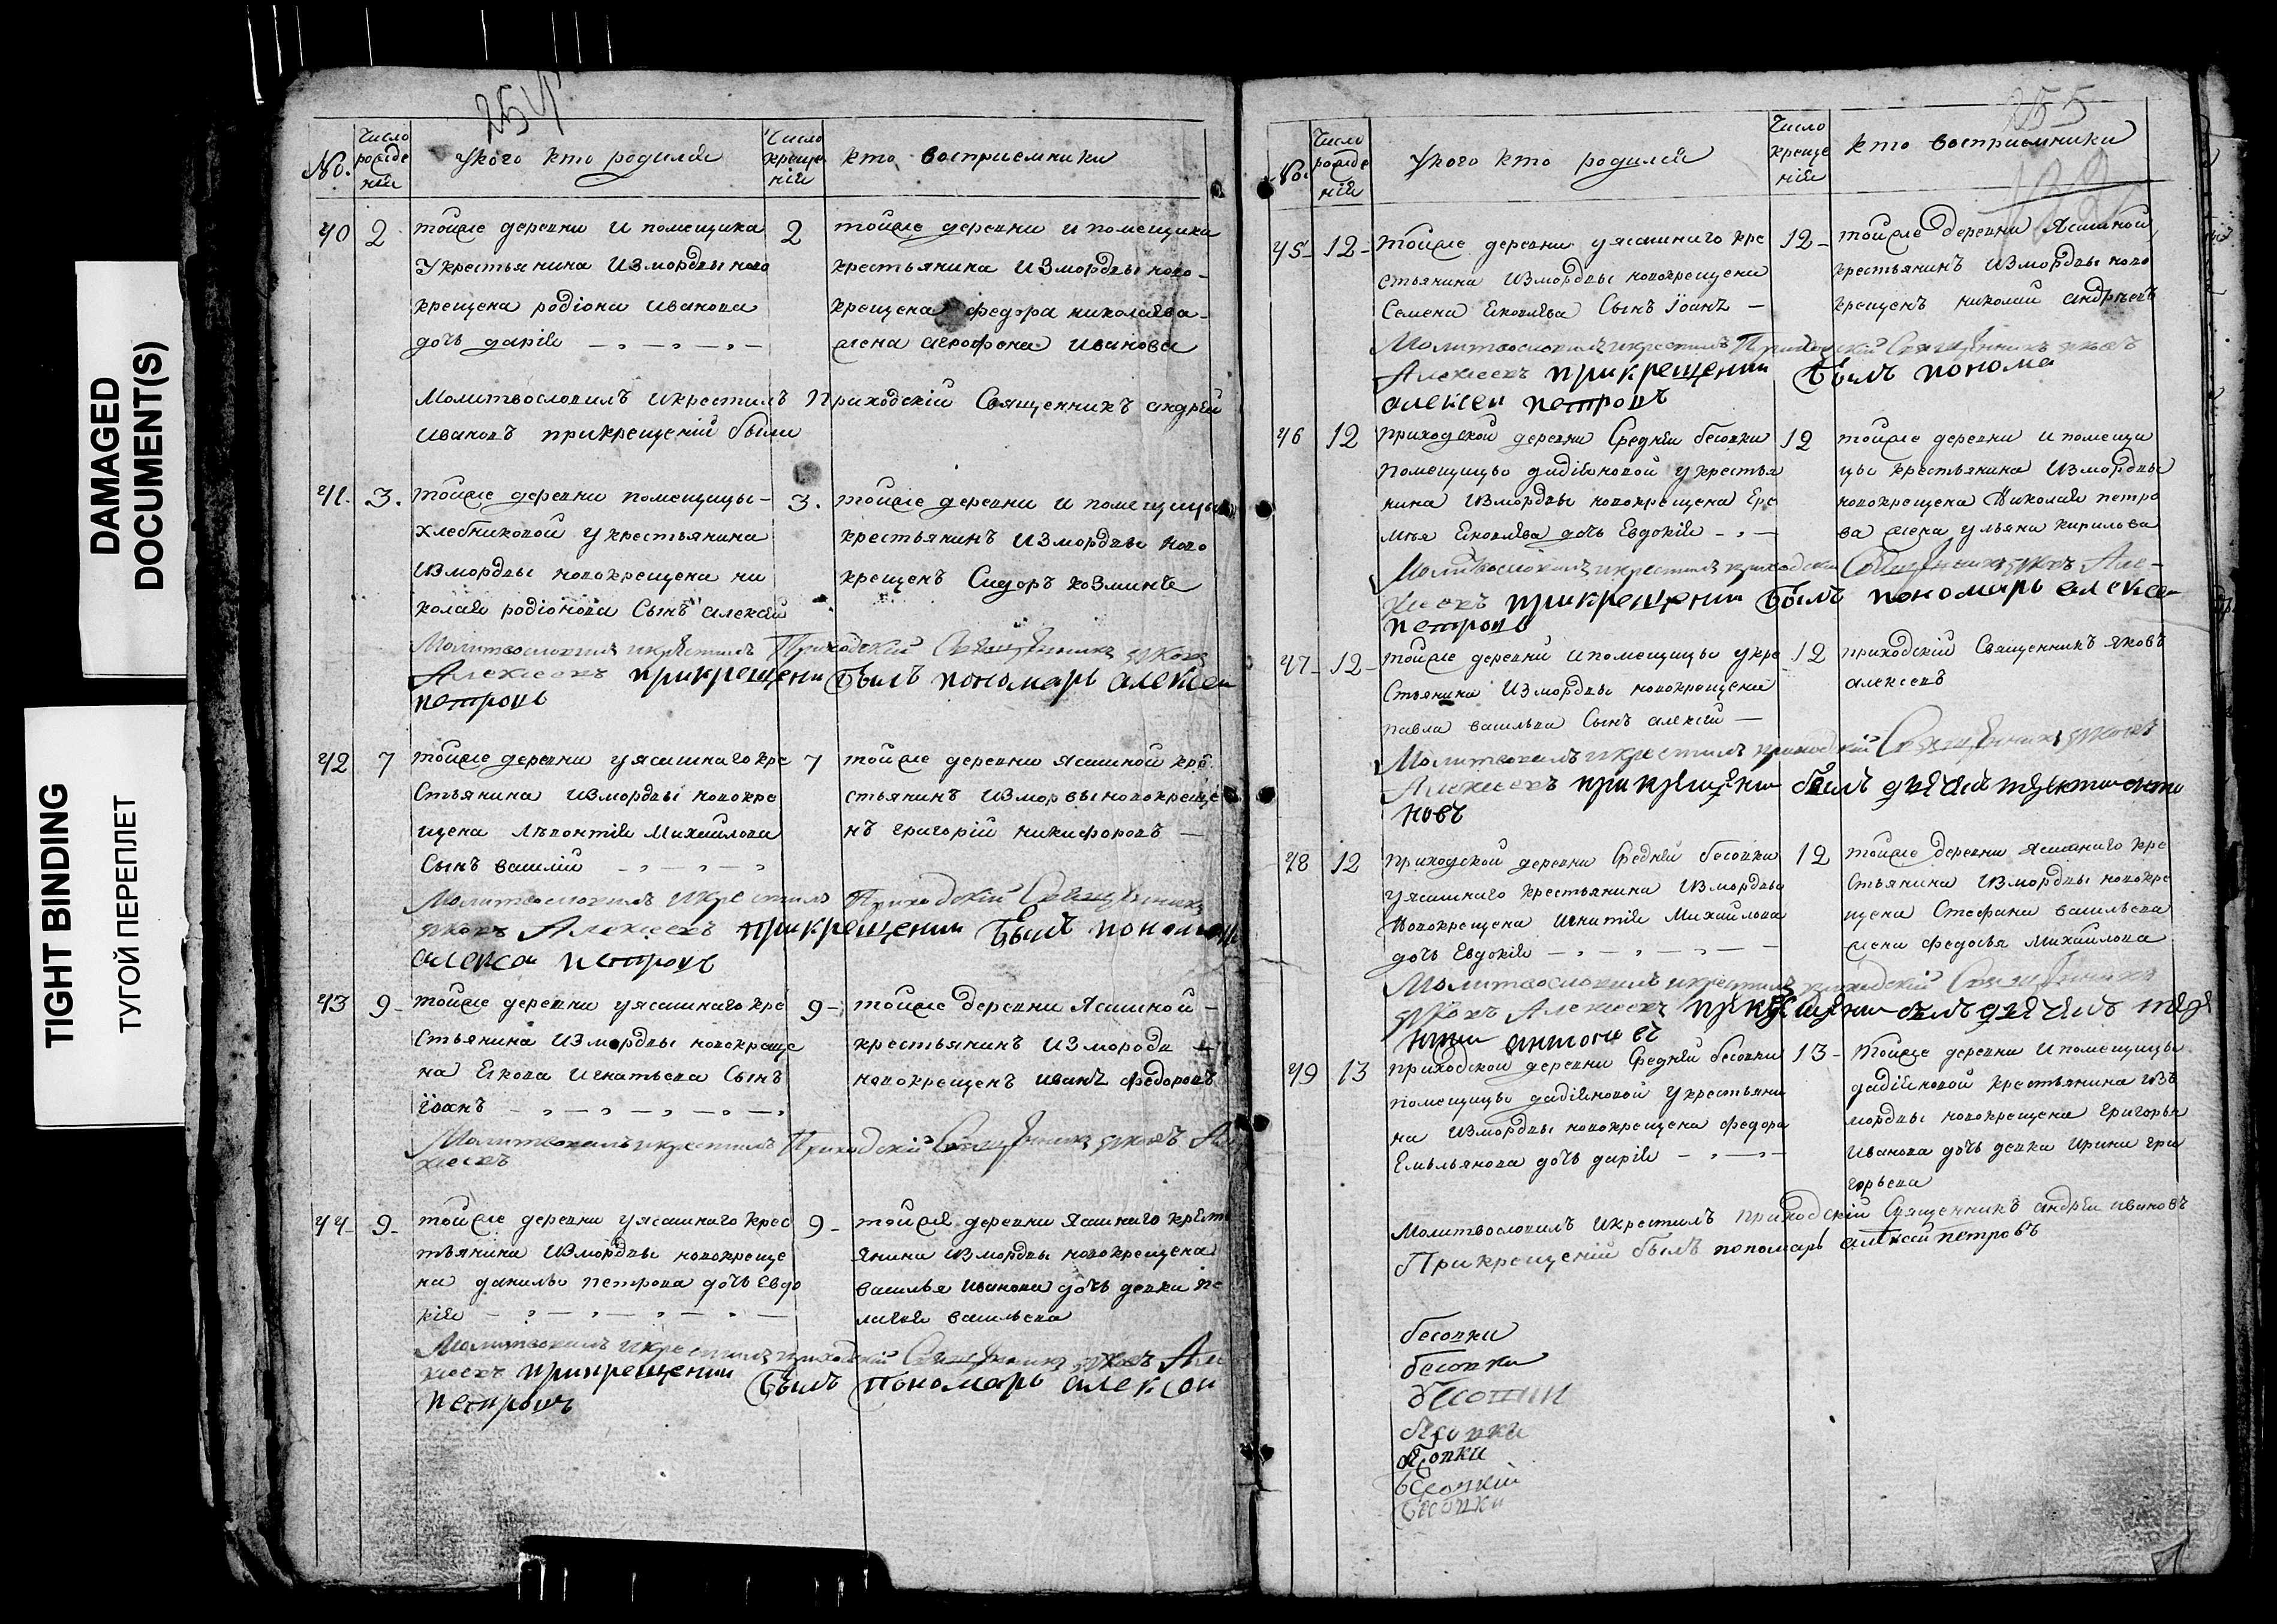 DAMAGED
DOCUMENT(S)
TIGHT BINDING
ТУГОЙ ПЕРЕПЛЕТ
254
No.
Число рожде ній
У кого кто родился
Число креще ній
кто восприемники
40
2
тойже деревни и помещика
У крестьянина Измордвы ново
крещена родіона иванова
дочь дарія
2
тойже деревни и помещика
крестьянина Измордвы ново-
крещена федора николаева
жена агрофена иванова
Молитвословилъ и крестилъ Приходскій Священникъ андрей
ивановъ прикрещеній были
41.
3.
тойже деревни помещицы-
хлебниковой у крестьянина
Измордвы новокрещена ни
колая родіонова Сынъ алексей
3.
тойже деревни и помещицы
крестьянинъ Измордвы ново
крещенъ Сидоръ козминъ
Молитвословилъ и крестилъ Приходскій Священникъ яковъ
Алексеевъ прикрещени былъ пономарь алексеи
петровъ
42
7
тойже деревни у ясашнаго кре
Стьянина Измордвы новокре
щена леонтія Михаилова
Сынъ василій
7
тойже деревни ясашной кре
стьянинъ Измордвы новокреще
нъ григорій никифоровъ
Молитвословилъ и крестилъ Приходскій Священникъ
яковъ Алексеевъ прикрещении былъ пономарь
алексеи петровъ
43
9
тойже деревни у ясашнаго кре
Стьянина Измордвы новокреще
на якова игнатьева Сынъ
їоанъ
9
тойже деревни ясашной
крестьянинъ Измордвы
новокрещенъ иванъ федоровъ
Молитвовалъ и крестилъ Приходскій Священникъ яковъ Але
ксеевъ
44
9
тойже деревни у ясашнаго крес
тьянина Измордвы новокреще
на данилы петрова дочь Евдо
кія
9
тойже деревни ясашнаго крестья
янина Измордвы новокрещена
василья иванова дочь девка пе
лагея васильева
Молитвовалъ и крестилъ приходскій Священникъ яковъ Але
ксеевъ прикрещении былъ пономарь алексеи
петровъ
255
No.
Число рожде ній
У кого кто родился
Число креще ній
кто восприемники
45
12
тойже деревни у ясашнаго кре
стьянина Измордвы новокрещена
Семена яковлева Сынъ їоанъ
12
тойже деревни ясашной
крестьянинъ Измордвы ново
крещенъ николай андреевъ
Молитвословилъ и крестилъ Приходскій Священникъ яковъ
Алексеевъ прикрещении былъ понома
алексеи петровъ
46
12
приходской деревни Средней бесовки
помещицы дадіяновой у крестья
нина Измордвы новокрещена Ере
мея яковлева дочь Евдокія
12
тойже деревни и помещи
цы крестьянина Измордвы
новокрещена Николая петро
ва жена ульяна кирилова
Молитвословилъ и крестилъ приходскій Священникъ яковъ Але-
ксеевъ прикрещении былъ пономарь алексеи
петровъ
47
12
тойже деревни и помещицы у кре
Стьянина Измордвы новокрещена
павла васильва Сынъ алексей
12
приходскій Священникъ яковъ
алексеевъ
Молитвовалъ и крестилъ приходскій Священникъ яковъ
Алексеевъ прикрещении былъ
новъ
48
12
приходской деревни Средней бесовки
у ясашнаго крестьянина Измордвы
Новокрещена игнатія Михаилова
дочь Евдокія
12
тойже деревни ясашнаго кре
Стьянина Измордвы новокре
щена Стефана васильева
жена федосья Михаилова
Молитвословилъ и крестилъ приходскій Священникъ
яковъ Алексеевъ прикрещении былъ
49
13
приходской деревни Средней бесовки
помещицы дадіяновой у крестьяни
на Измордвы новокрещена федора
Емельянова дочь дарія
13
тойже деревни и помещицы
дадіяновой крестьянина Изъ
мордвы новокрещена григорья
иванова дочь девка ирина гри
горьева
Молитвословилъ и крестилъ приходскій Священникъ андрей ивановъ
Прикрещеній былъ пономарь алексей петровъ
бесовки
бесовки
бесовки
бесовки
бесовки
бесовки
бесовки